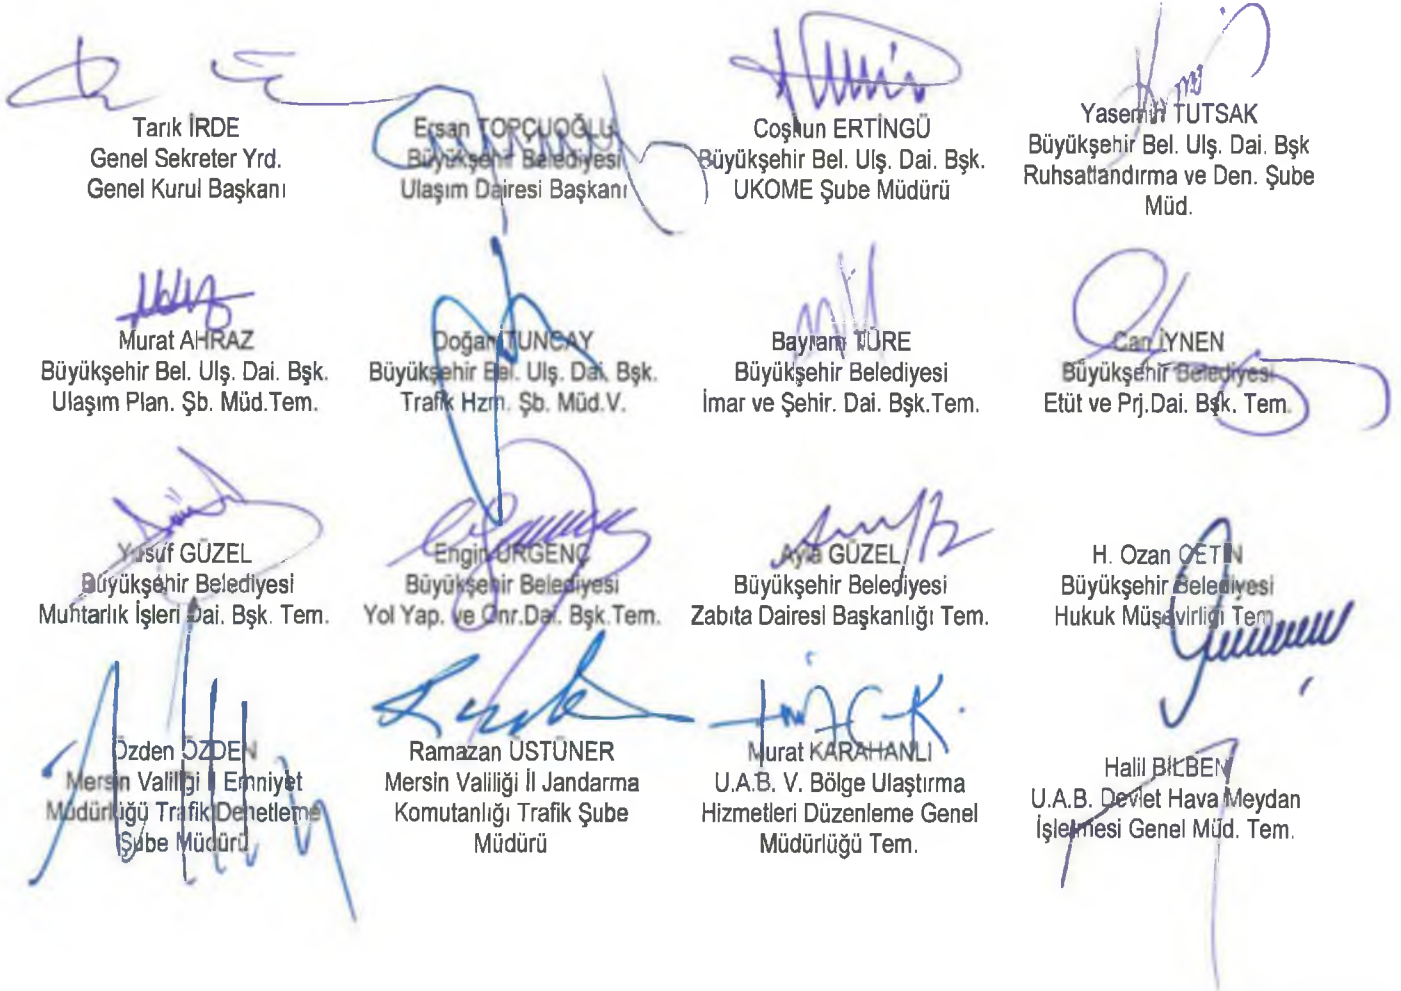 Tarık İRDE
Genel Sekreter Yrd.
Genel Kurul Başkanı
Ersan TOPÇUOĞLU
Büyükşehir Belediyesi
Ulaşım Dairesi Başkanı
Coşkun ERTİNGÜ
Büyükşehir Bel. Ulş. Dai. Bşk.
UKOME Şube Müdürü
Yasemin TUTSAK
Büyükşehir Bel. Ulş. Dai. Bşk
Ruhsatlandırma ve Den. Şube
Müd.
Murat AHRAZ
Büyükşehir Bel. Ulş. Dai. Bşk.
Ulaşım Plan. Şb. Müd.Tem.
Doğan TUNCAY
Büyükşehir Bel. Ulş. Dai. Bşk.
Trafik Hzm. Şb. Müd.V.
Bayram TÜRE
Büyükşehir Belediyesi
İmar ve Şehir. Dai. Bşk.Tem.
Can İYNEN
Büyükşehir Belediyesi
Etüt ve Prj.Dai. Bşk. Tem.
Yusuf GÜZEL
Büyükşehir Belediyesi
Muhtarlık İşleri Dai. Bşk. Tem.
Engin ÜRGENÇ
Büyükşehir Belediyesi
Yol Yap. ve Onr.Dai. Bşk.Tem.
Ayla GÜZEL
Büyükşehir Belediyesi
Zabıta Dairesi Başkanlığı Tem.
H. Ozan ÇETİN
Büyükşehir Belediyesi
Hukuk Müşavirliği Tem
Özden ÖZDEN
Mersin Valiliği İl Emniyet
Müdürlüğü Trafik Denetleme
Şube Müdürü
Ramazan ÜSTÜNER
Mersin Valiliği İl Jandarma
Komutanlığı Trafik Şube
Müdürü
Murat KARAHANLI
U.A.B. V. Bölge Ulaştırma
Hizmetleri Düzenleme Genel
Müdürlüğü Tem.
Halil BİLBEN
U.A.B. Devlet Hava Meydan
İşletmesi Genel Müd. Tem.